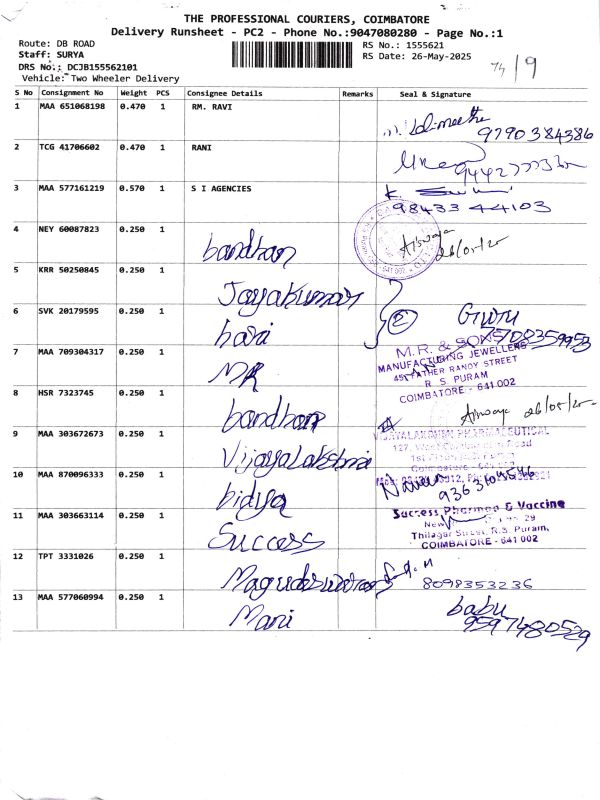 THE PROFESSIONAL COURIERS, COIMBATORE
Delivery Runsheet - PC2 - Phone No.:9047080280 - Page No.:1
Route: DB ROAD
Staff: SURYA
DRS No.: DCJB155562101
Vehicle: Two Wheeler Delivery
RS No.: 1555621
RS Date: 26-May-2025
74/9
S No Consignment No Weight PCS Consignee Details Remarks Seal & Signature
1 MAA 651068198 0.470 1 RM. RAVI
9790384386
2 TCG 41706602 0.470 1 RANI
3 MAA 577161219 0.570 1 S I AGENCIES
98433 44103
4 NEY 60087823 0.250 1 bandhan
26/05/25
5 KRR 50250845 0.250 1 Jayakumar
6 SVK 20179595 0.250 1 hari
2
5708359953
7 MAA 709304317 0.250 1 MR
M.R. & SONS
MANUFACTURING JEWELLERS
45, FATHER RANDY STREET
R. S. PURAM
COIMBATORE - 641 002
8 HSR 7323745 0.250 1 bandhan
26/05/25
9 MAA 303672673 0.250 1 Vijayalakshmi
VIJAYALAKSHMI PHARMACEUTICAL
10 MAA 870096333 0.250 1 bidya
Naveen
9363104546
11 MAA 303663114 0.250 1 Success
Success Pharma & Vaccine
Thilagar Street, R.S. Puram,
COIMBATORE - 641 002
12 TPT 3331026 0.250 1 Magudeswaran
8098353236
13 MAA 577060994 0.250 1 Mani
babu
9597480529